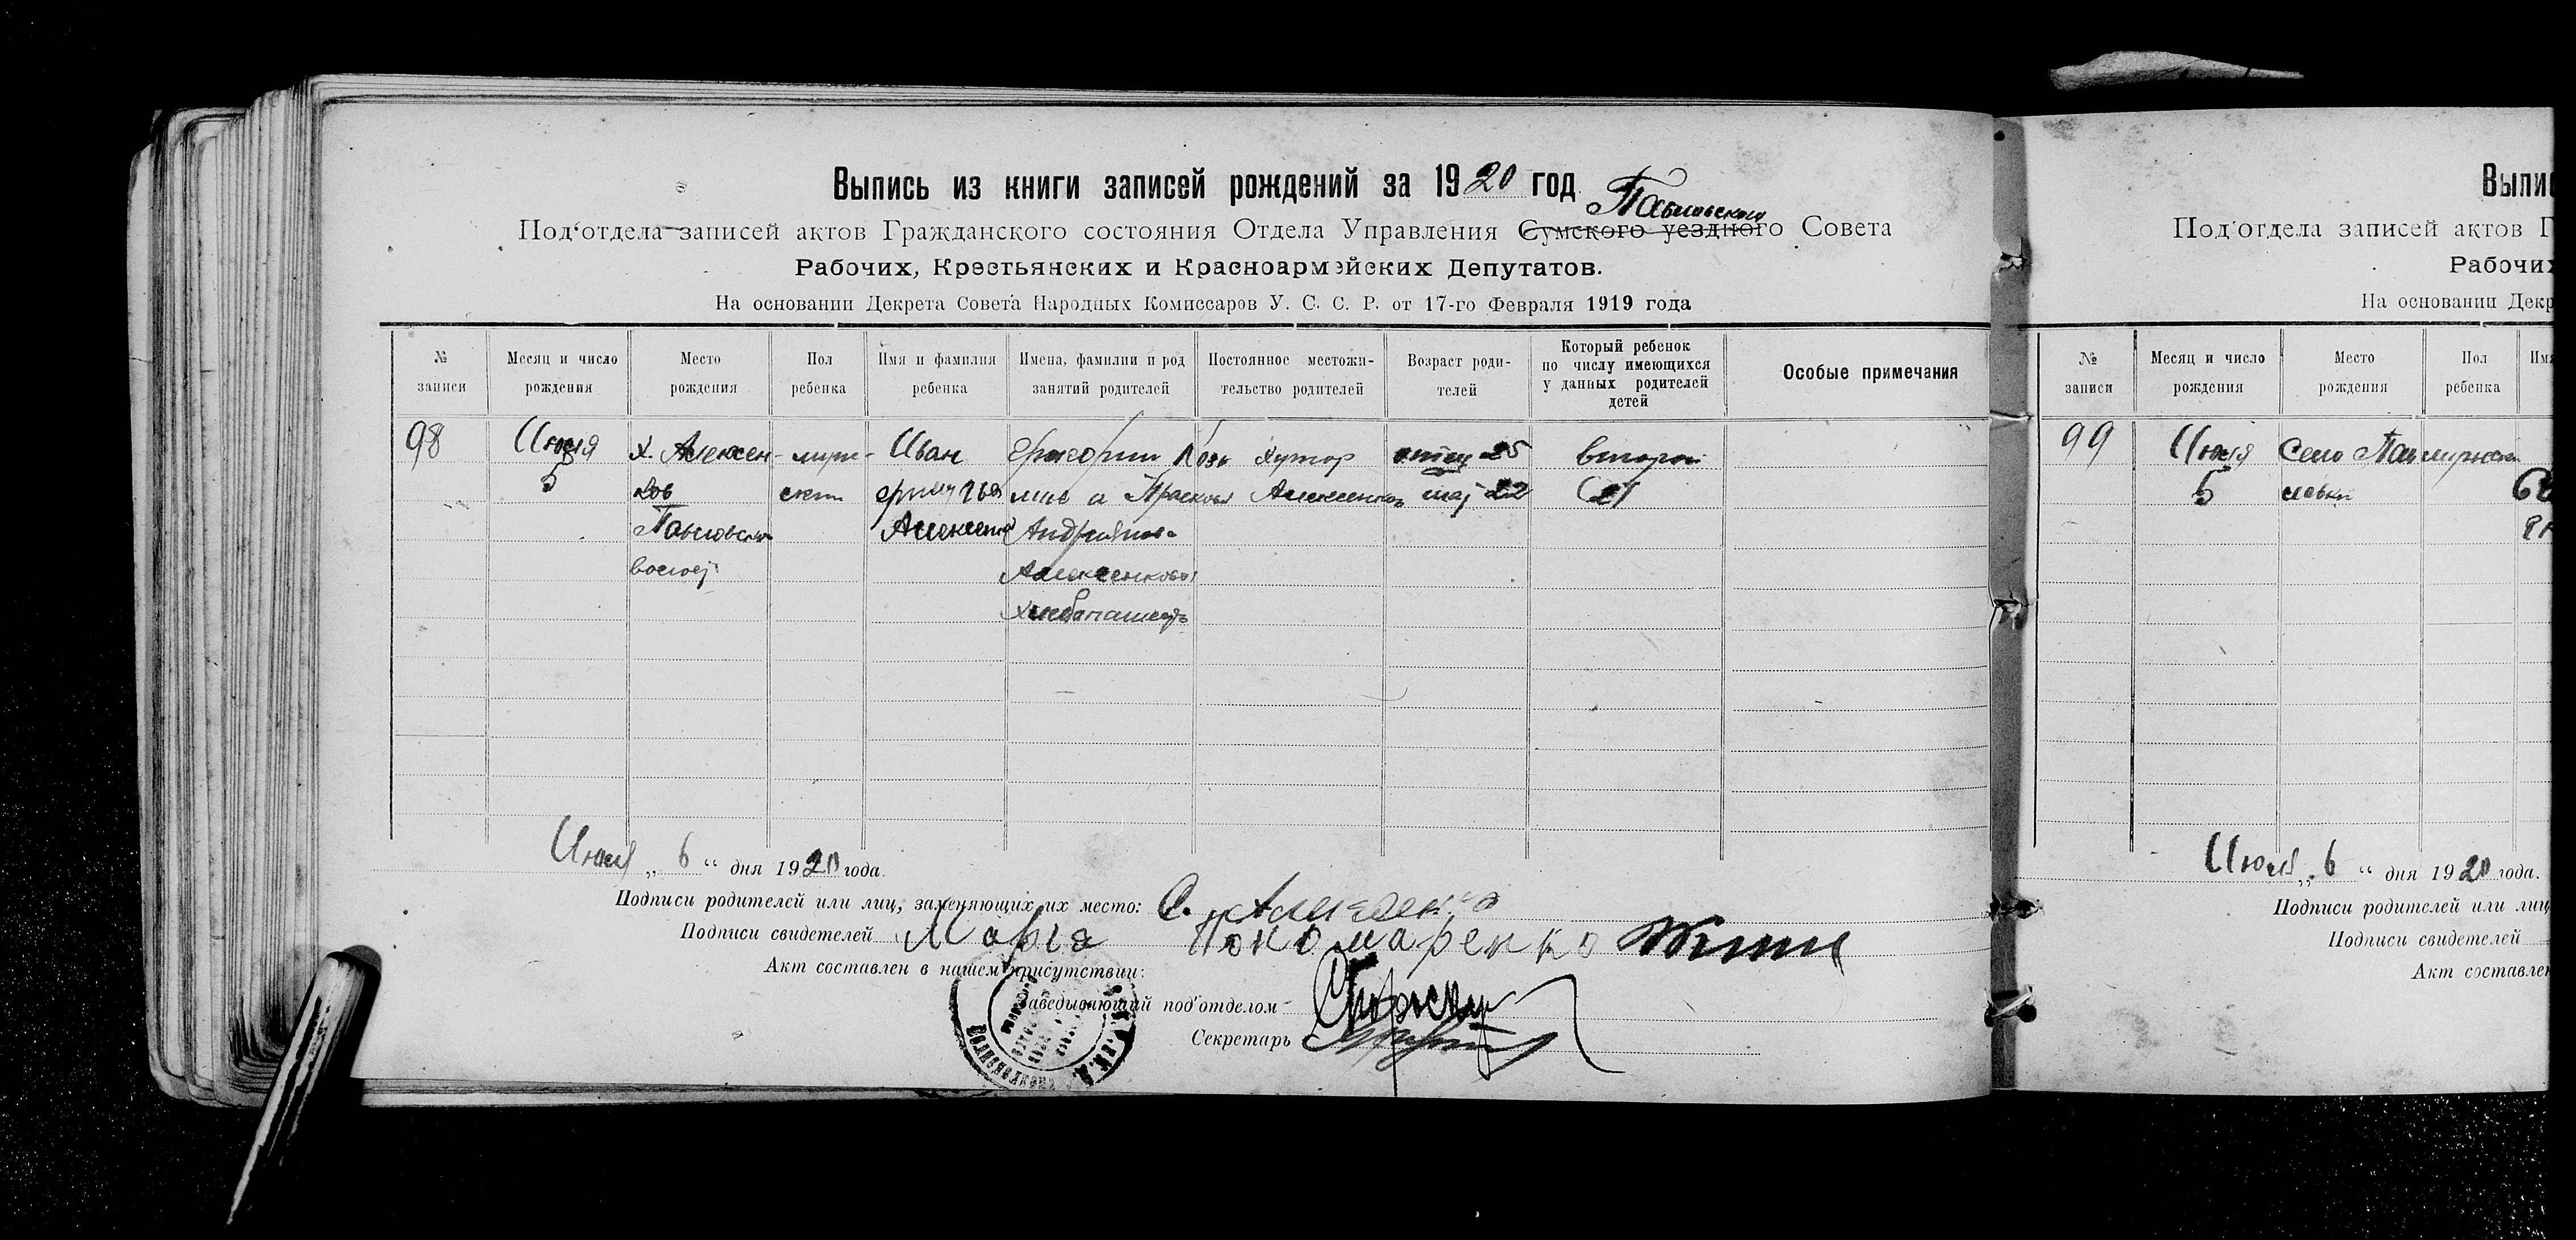 Выпись из книги записей рождений за 1920 год
Павловского
Под'отдела записей актов Гражданского состояния Отдела Управления Сумского уездного Совета
Рабочих, Крестьянских и Красноармейских Депутатов.
На основании Декрета Совета Народных Комиссаров У. С. С. Р. от 17-го Февраля 1919 года
№ записи
Месяц и число рождения
Место рождения
Пол ребенка
Имя и фамилия ребенка
Имена, фамилии и род занятий родителей
Постоянное местожительство родителей
Возраст родителей
Который ребенок по числу имеющихся у данных родителей детей
Особые примечания
98
Июля
5
х. Алексен-
ков
Павловской
волост
мужс-
Иван
Григорий
и Прасковья
Андрияновна
Алексенковы
Хлебопашец
Хутор
отец 25
22
второй
(2)
Июля „ 6 “ дня 1920 года.
Подписи родителей или лиц, заменяющих их место:
Подписи свидетелей Марія Пономаренко
Акт составлен в нашем присутствии:
Заведывающий под'отделом
Секретарь
Выпис
Под'отдела записей актов Г
Рабочих
На основании Декр
№ записи
Месяц и число рождения
Место рождения
Пол ребенка
Имя
99
Июля
5
Село Пав
ловки
Июля „ 6 “ дня 1920 года.
Подписи родителей или лиц
Подписи свидетелей
Акт составлен